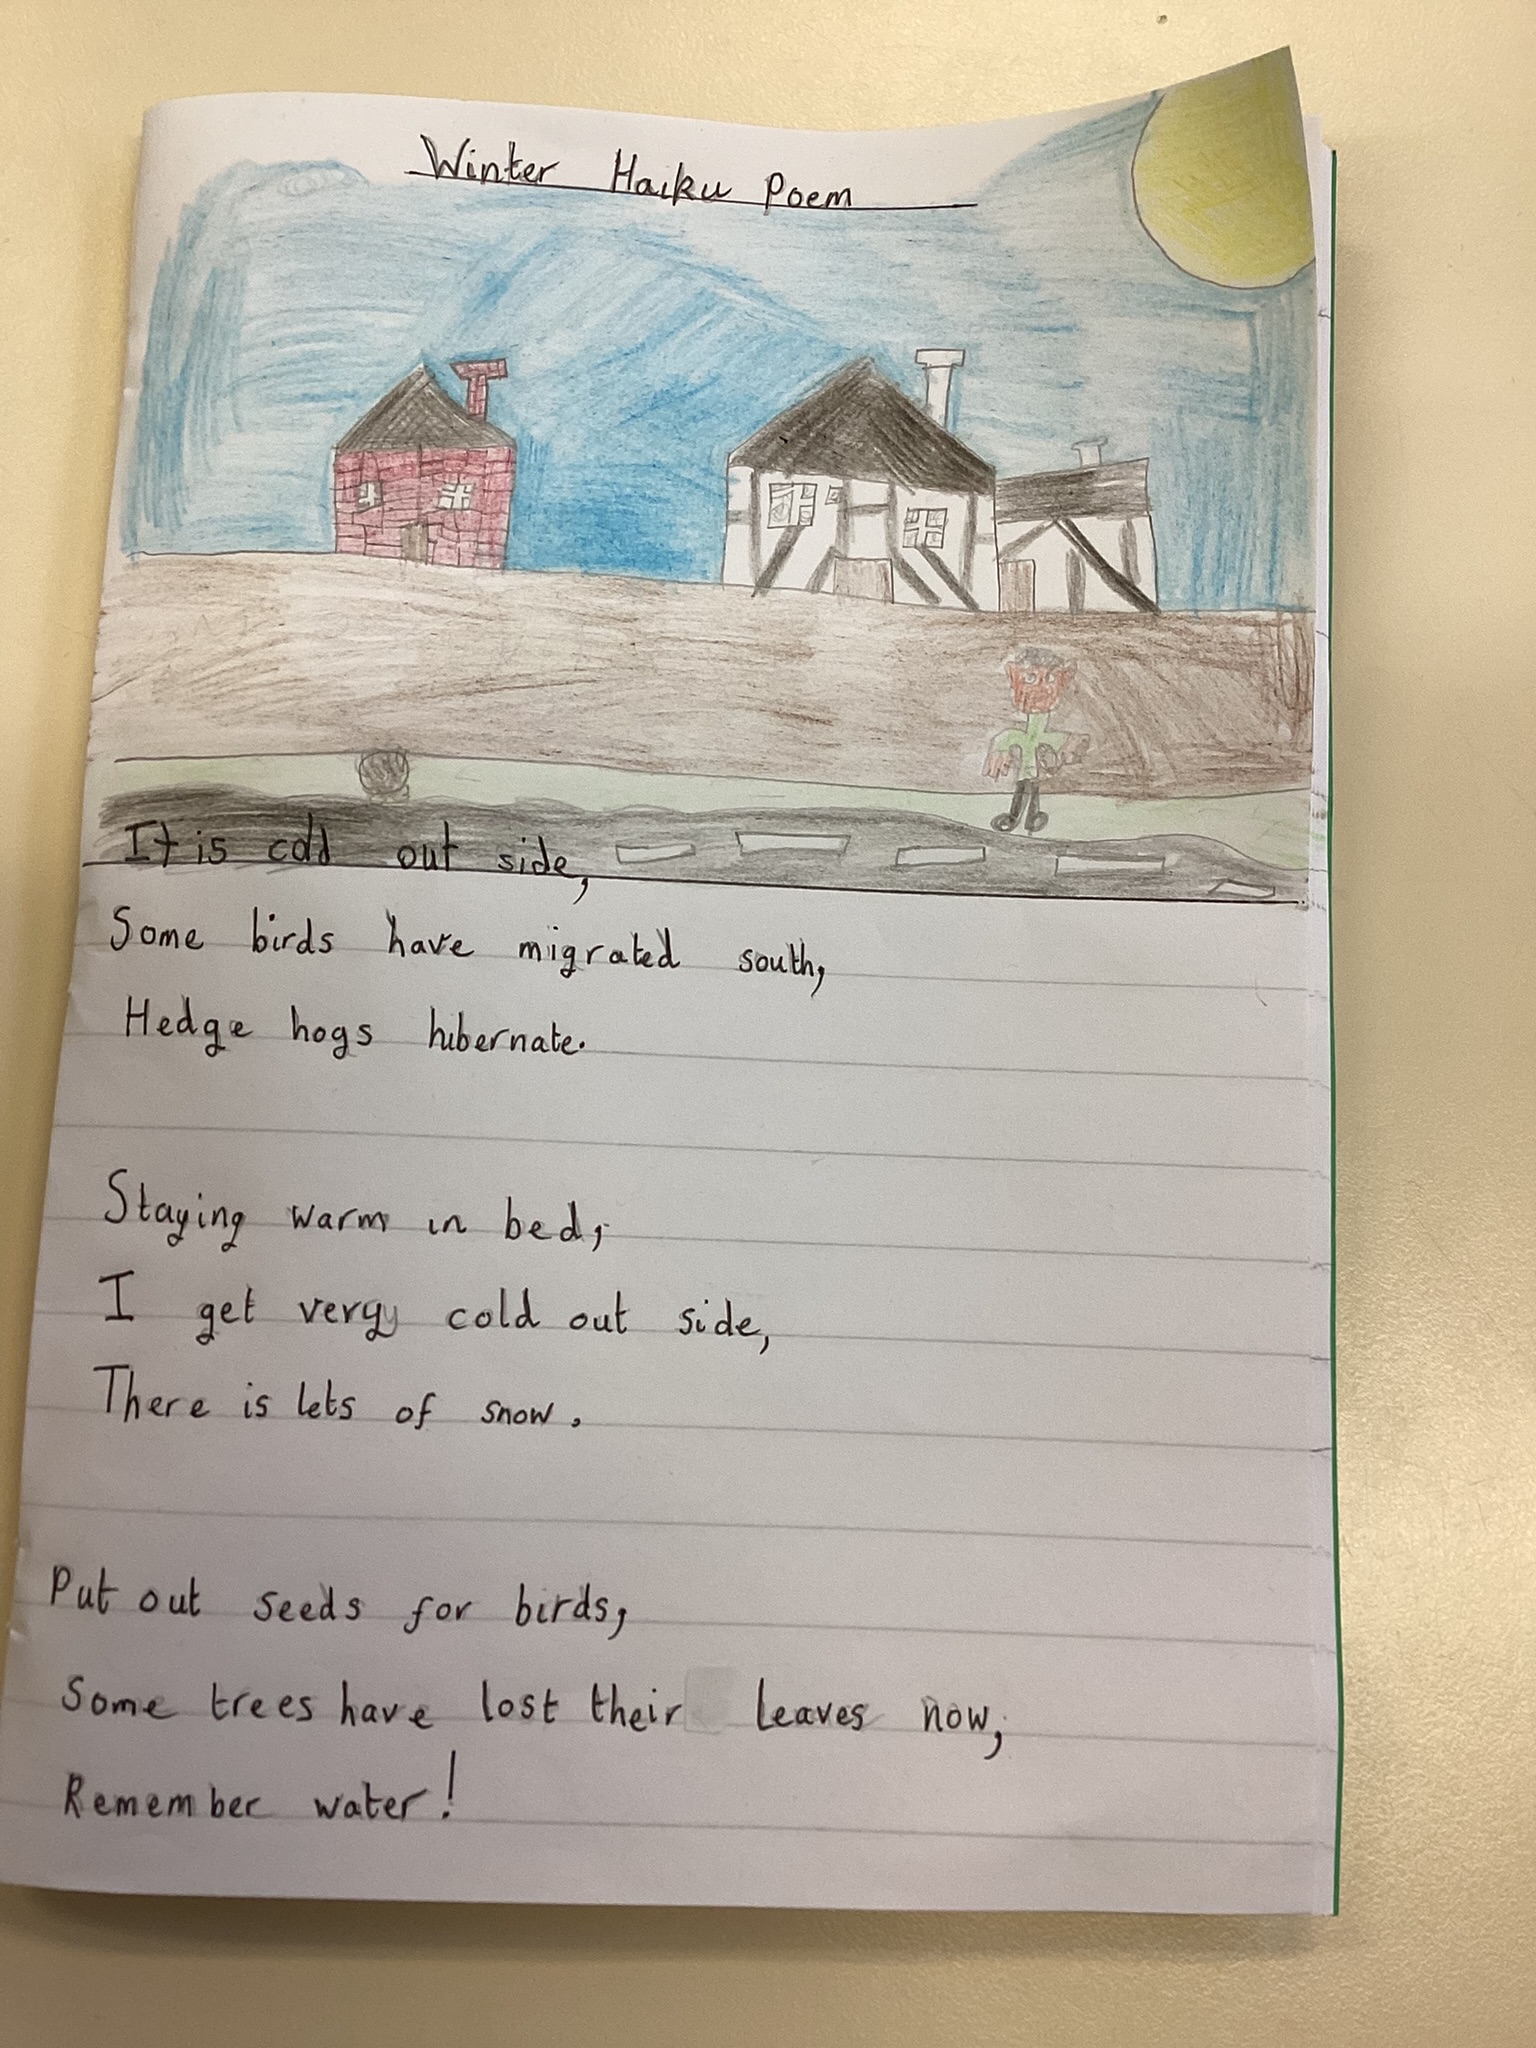 Winter Haiku Poem
It is cold out side,
Some birds have migrated south,
Hedge hogs hibernate.
Staying warm in bed,
I get very cold out side,
There is lots of snow.
Put out seeds for birds,
Some trees have lost their leaves now,
Remember water!